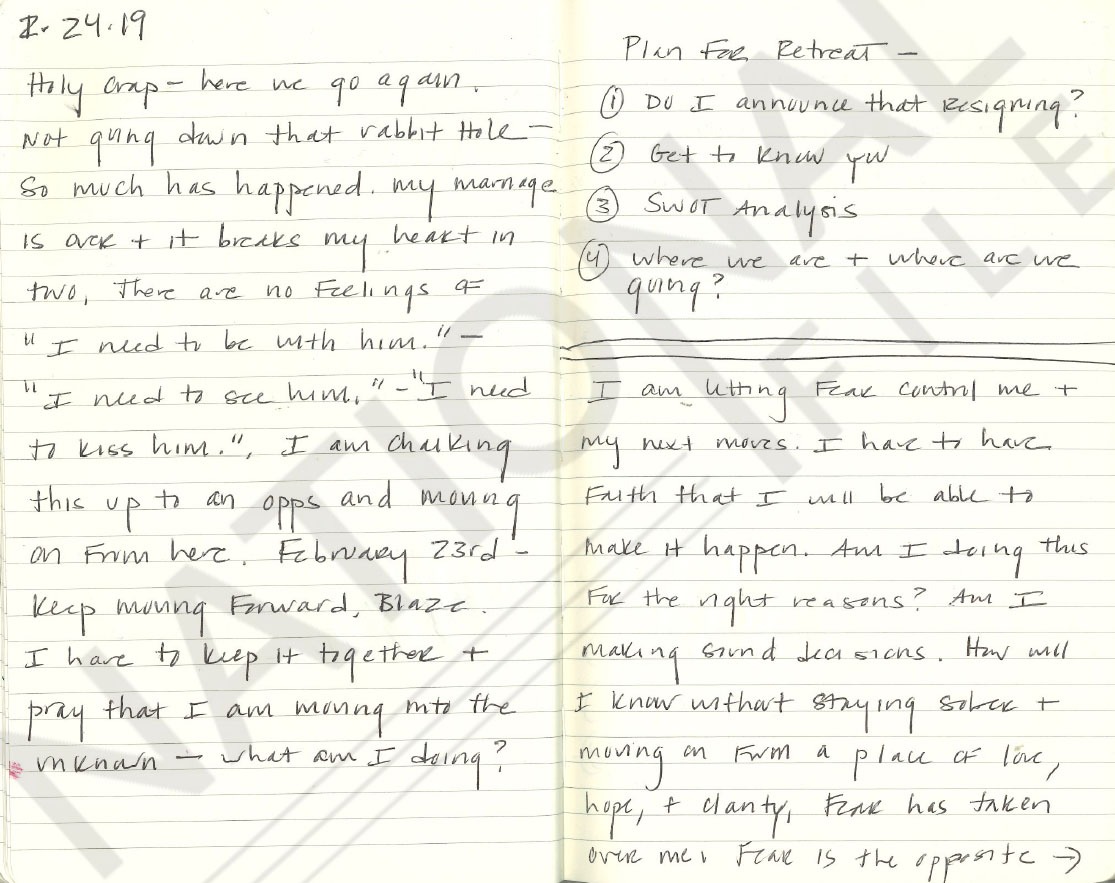 2.24.19
Holy crap - here we go again.
Not going down that rabbit Hole -
So much has happened. my marriage
is over + it breaks my heart in
two, there are no Feelings of
"I need to be with him." -
"I need to see him." - "I need
to kiss him.", I am chalking
this up to an opps and moving
on From here. February 23rd -
Keep moving Forward, Blaze.
I have to keep it together +
pray that I am moving into the
unknown - what am I doing?
Plan For Retreat -
① Do I announce that resigning?
② Get to know yw
③ SWOT Analysis
④ where we are + where are we
going?
I am letting Fear control me +
my next moves. I have to have
Faith that I will be able to
make it happen. Am I doing this
For the right reasons? Am I
making sound decisions. How will
I know without staying sober +
moving on From a place of love,
hope, + clarity, Fear has taken
over me. Fear is the opposite →
NATIONAL
FILE